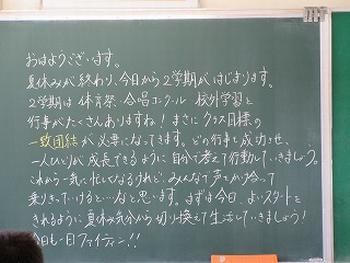 おはようございます。
夏休みが終わり、今日から2学期がはじまります。
2学期は 体育祭・合唱コンクール 校外学習と
行事がたくさんありますね！まさにクラス目標の
一致団結が必要になってきます。どの行事も成功させ、
一人ひとりが成長できるように自分で考えて行動していきましょう。
これから一気に忙しくなるけれど、みんなで声をかけ合って
乗りきっていけると…なと思います。まずは今日、よいスタートを
きれるように夏休み気分から切り換えて生活していきましょう！
今日も一日ファイティン！！